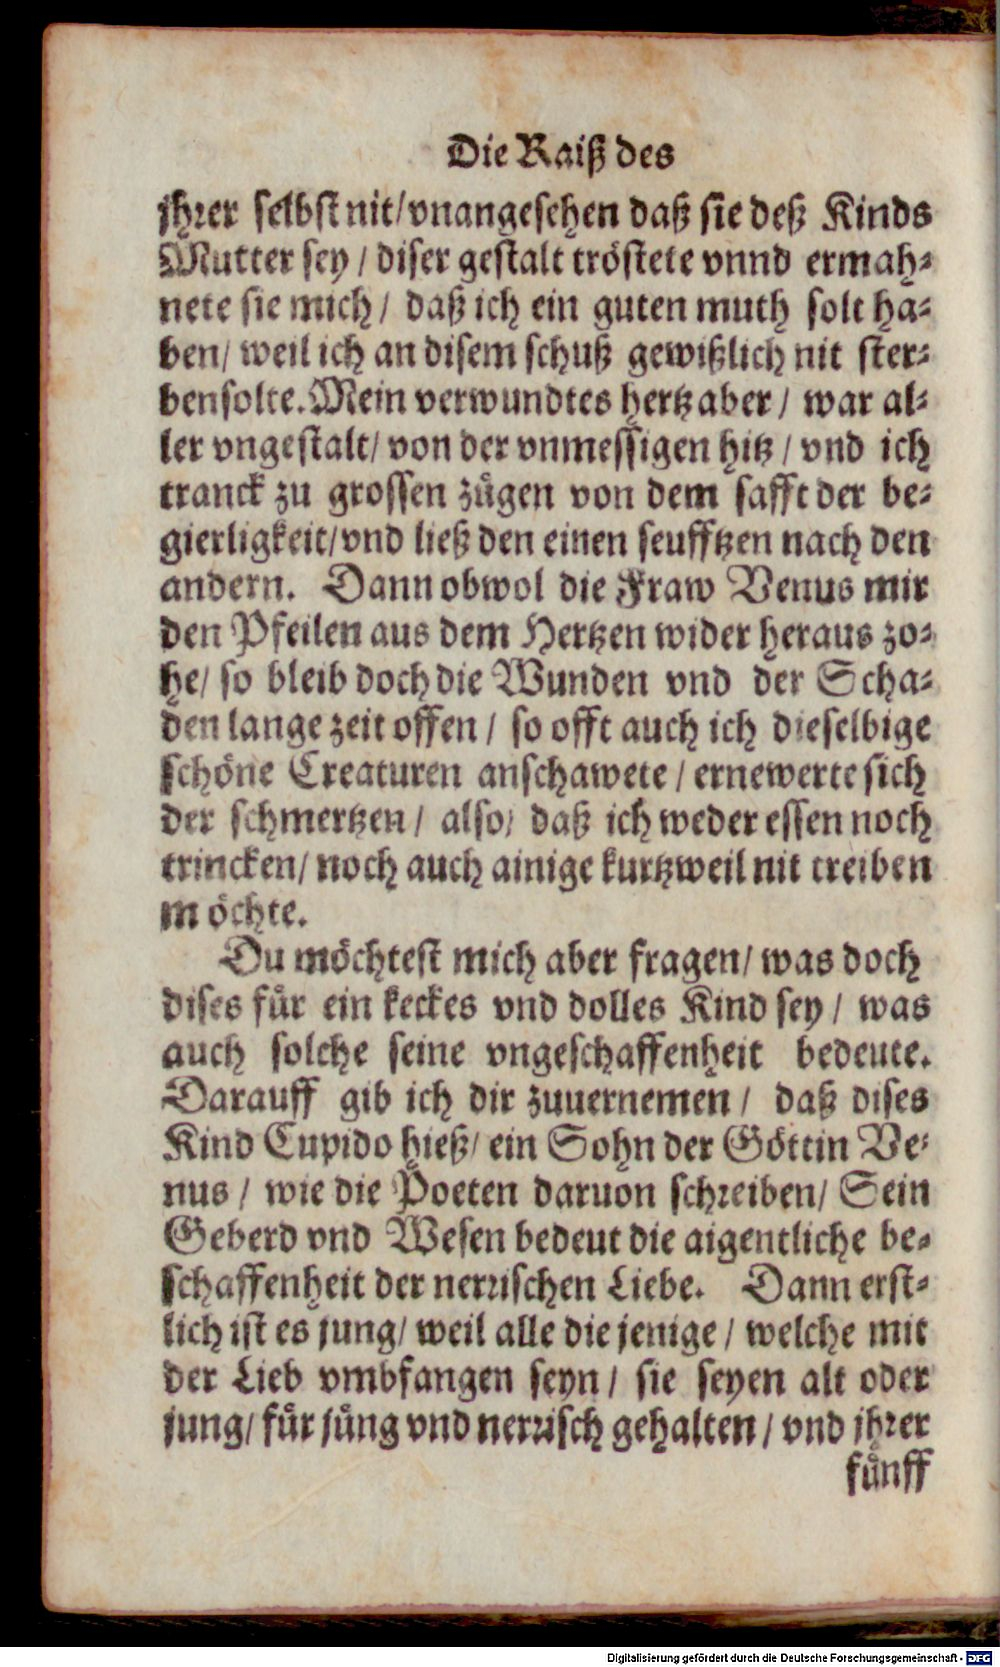 Die Raiß des
jhrer selbst nit/ vnangesehen daß sie deß Kinds
Mutter sey / diser gestalt tröstete vnnd ermah-
nete sie mich / daß ich ein guten muth solt ha-
ben/ weil ich an disem schuß gewißlich nit ster-
ben solte. Mein verwundtes hertz aber / war al-
ler vngestalt/ von der vnmessigen hitz / vnd ich
tranck zu grossen zügen von dem safft der be-
gierligkeit/ vnd ließ den einen seufftzen nach den
andern. Dann obwol die Fraw Venus mir
den Pfeilen aus dem Hertzen wider heraus zo-
he/ so bleib doch die Wunden vnd der Scha-
den lange zeit offen / so offt auch ich dieselbige
schöne Creaturen anschawete / ernewerte sich
der schmertzen / also/ daß ich weder essen noch
trincken/ noch auch ainige kurtzweil nit treiben
möchte.
Du möchtest mich aber fragen/ was doch
dises für ein keckes vnd dolles Kind sey / was
auch solche seine vngeschaffenheit bedeute.
Darauff gib ich dir zuuernemen / daß dises
Kind Cupido hieß/ ein Sohn der Göttin Ve-
nus / wie die Poeten daruon schreiben/ Sein
Geberd vnd Wesen bedeut die aigentliche be-
schaffenheit der nerrischen Liebe. Dann erst-
lich ist es jung/ weil alle die jenige / welche mit
der Lieb vmbfangen seyn / sie seyen alt oder
jung/ für jüng vnd nerrisch gehalten / vnd jhrer
fünff
Digitalisierung gefördert durch die Deutsche Forschungsgemeinschaft - DFG